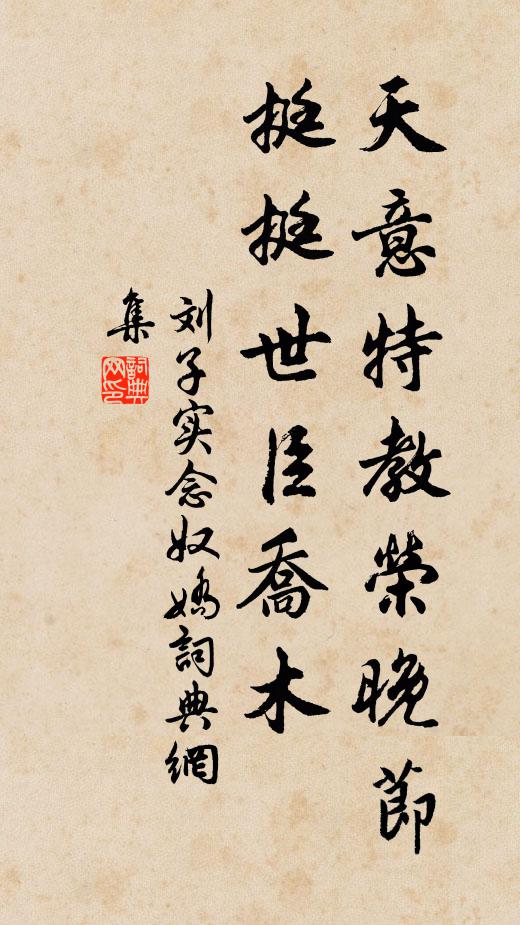 天意特教榮晚節
挺挺世臣喬木
刘子实念奴嬌詞典網
集
詞典
网印